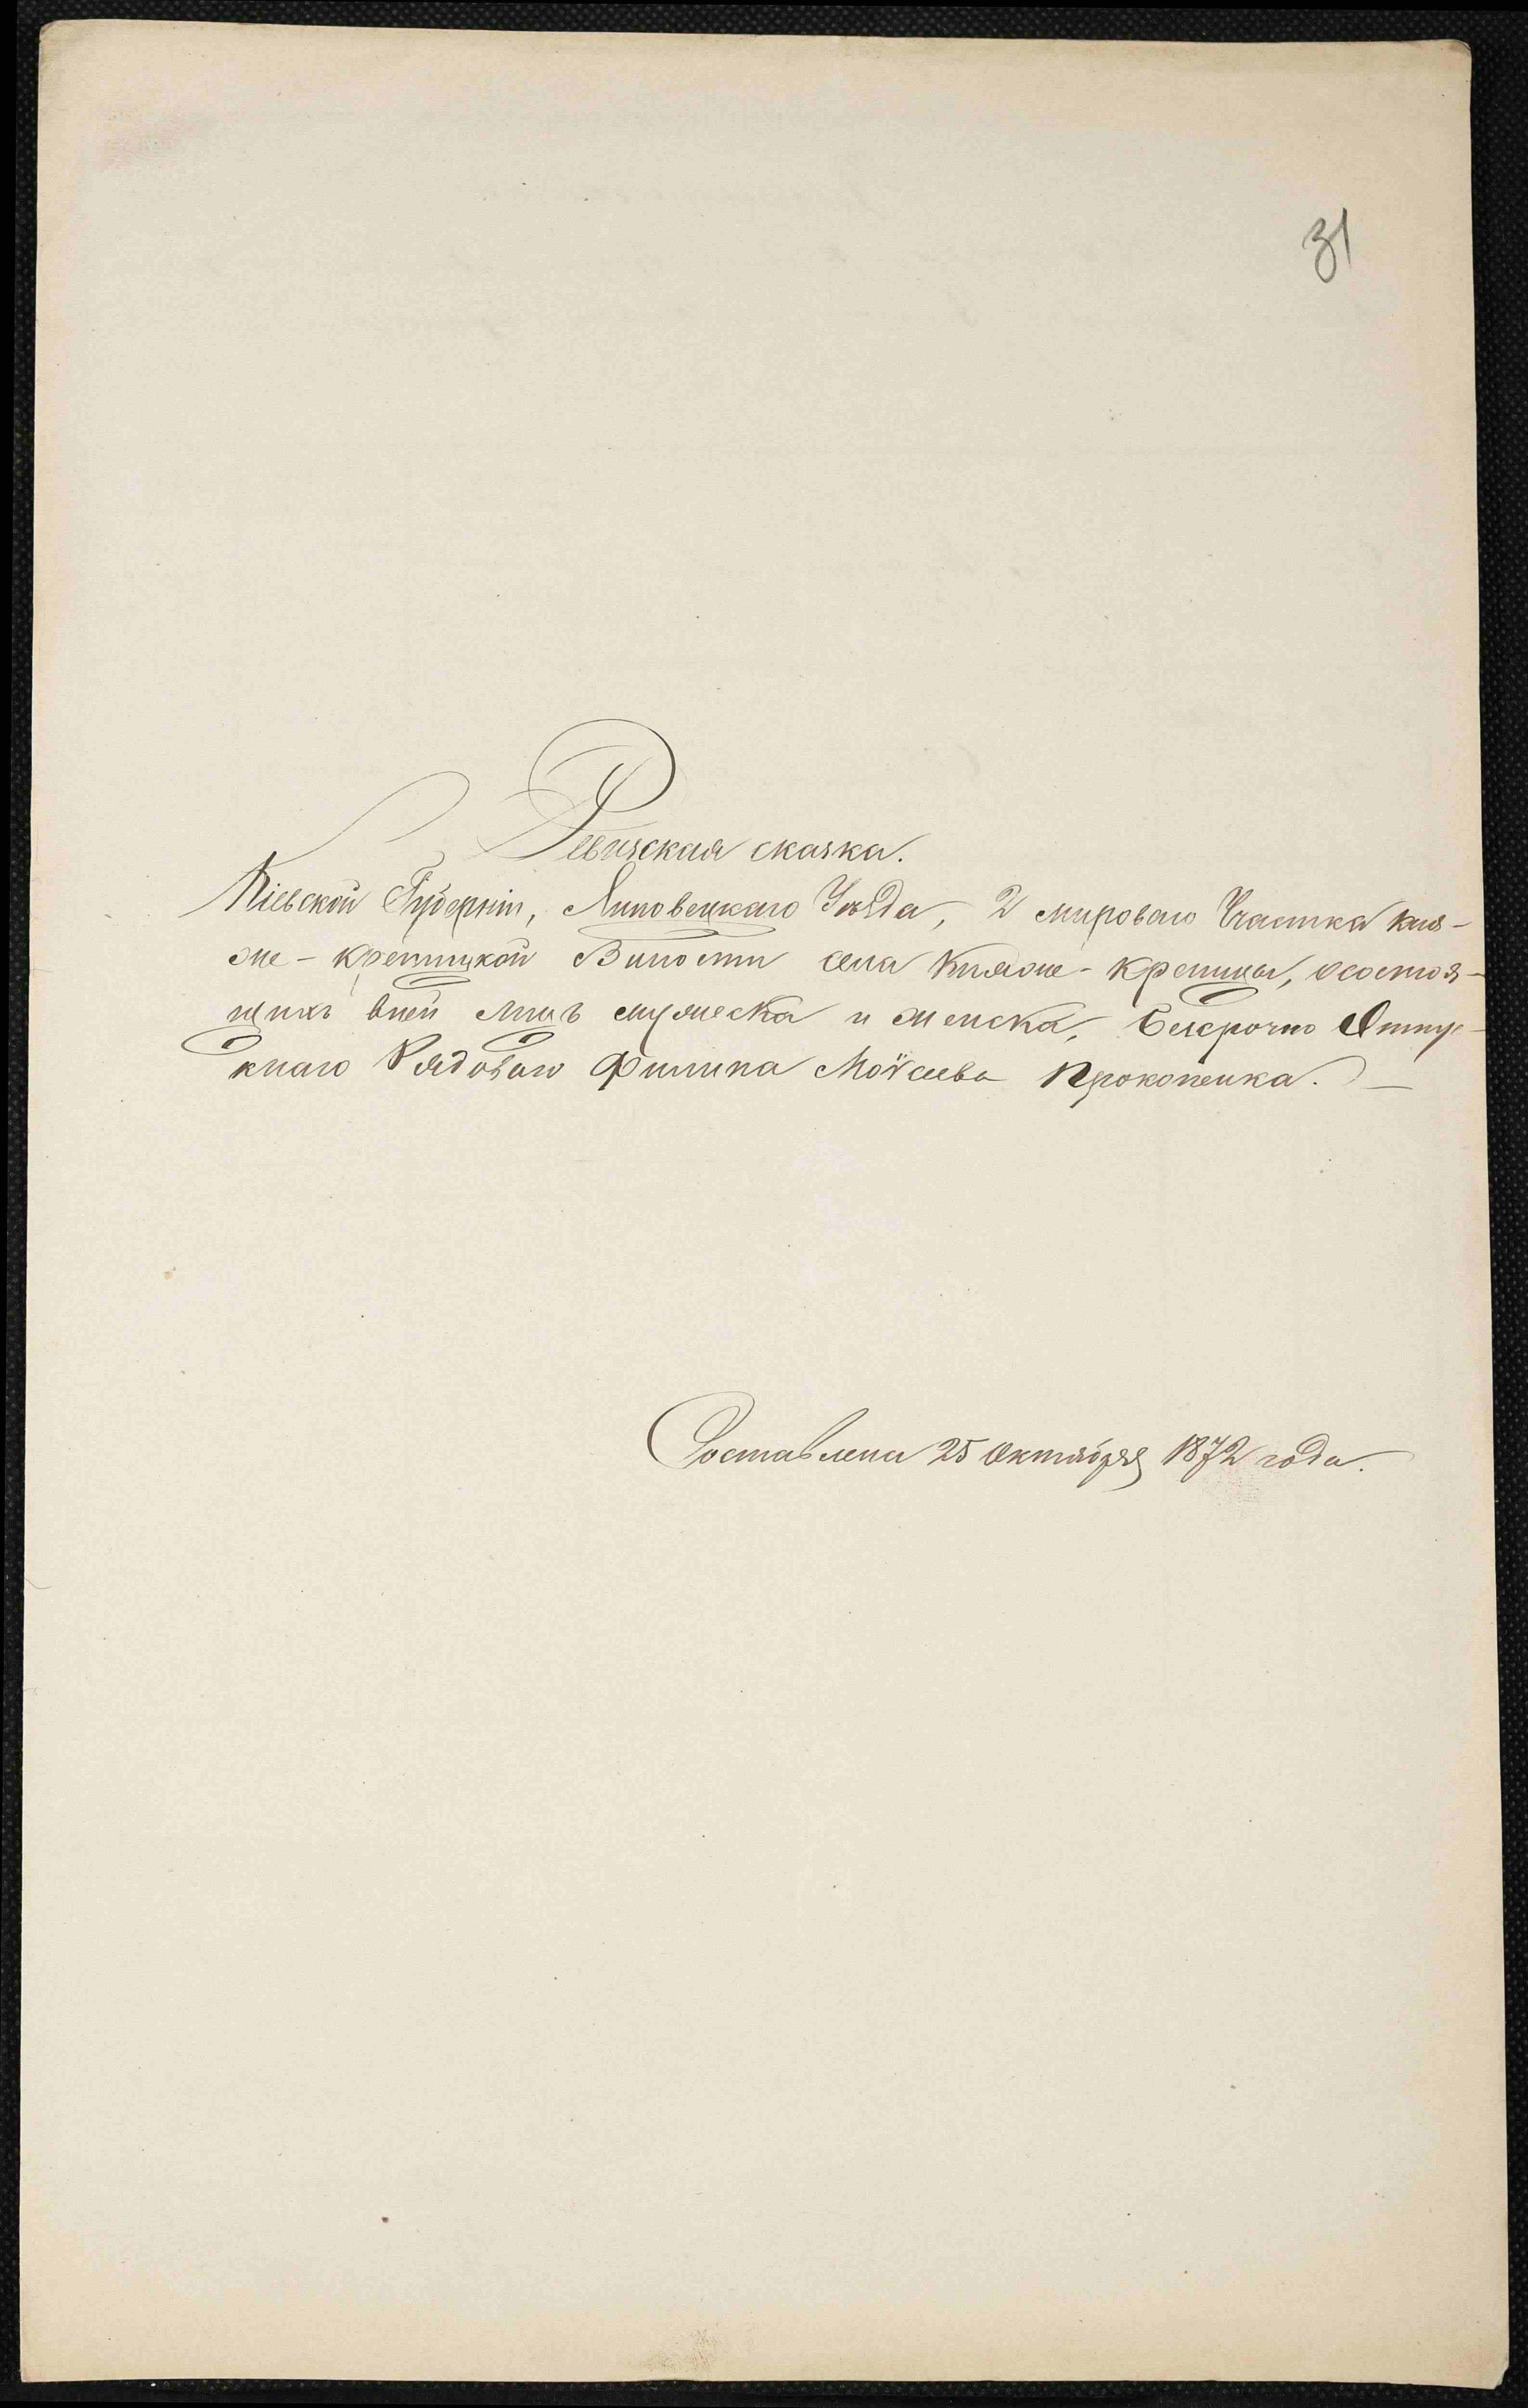 31
Ревизская сказка.
Кіевской Губерніи, Липовецкаго Уѣзда, 2 мироваго Участка Кня-
же-Креницкой Волости села Княже-Креницы, осостоя-
щихъ вней лицъ мужеска и женска, безсрочно Отпус-
кнаго Рядоваго Филипа Моѵсеева Прокопенка. —
Составлена 25 Октября 1872 года.